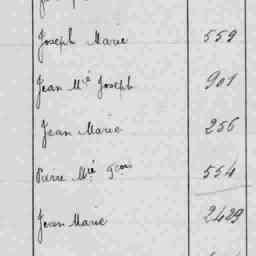 Joseph Marie 559
Jean Mie Joseph 901
Jean Marie 256
Pierre Mie Fçois 554
Jean Marie 2429